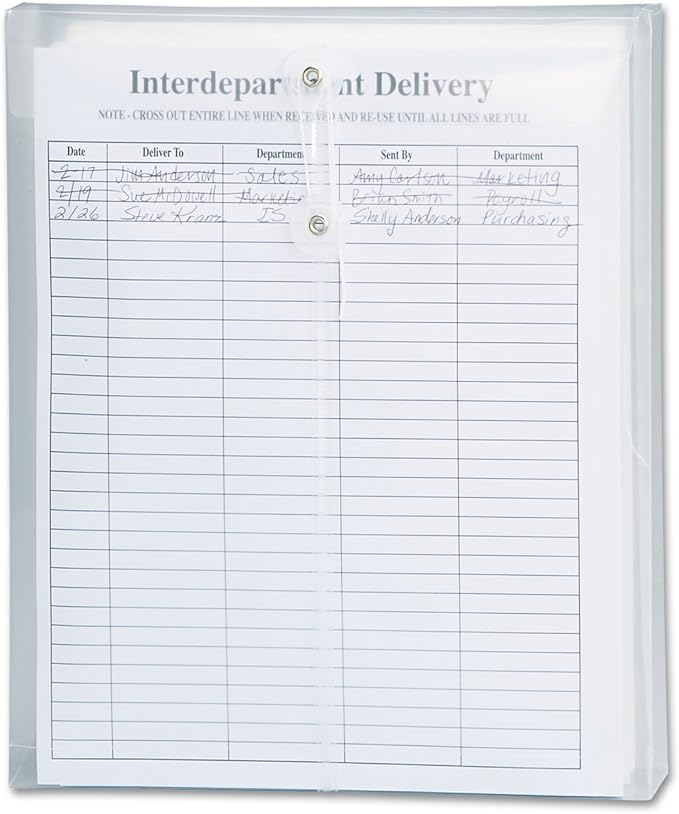 Interdepartment Delivery
NOTE - CROSS OUT ENTIRE LINE WHEN RECEIVED AND RE-USE UNTIL ALL LINES ARE FULL
Date Deliver To Department Sent By Department
2-17 Jim Anderson Sales Amy Carlson Marketing
2/19 Sue McDowell Market Brian Smith Payroll
2/26 Steve Kranz IS Shelly Anderson Purchasing